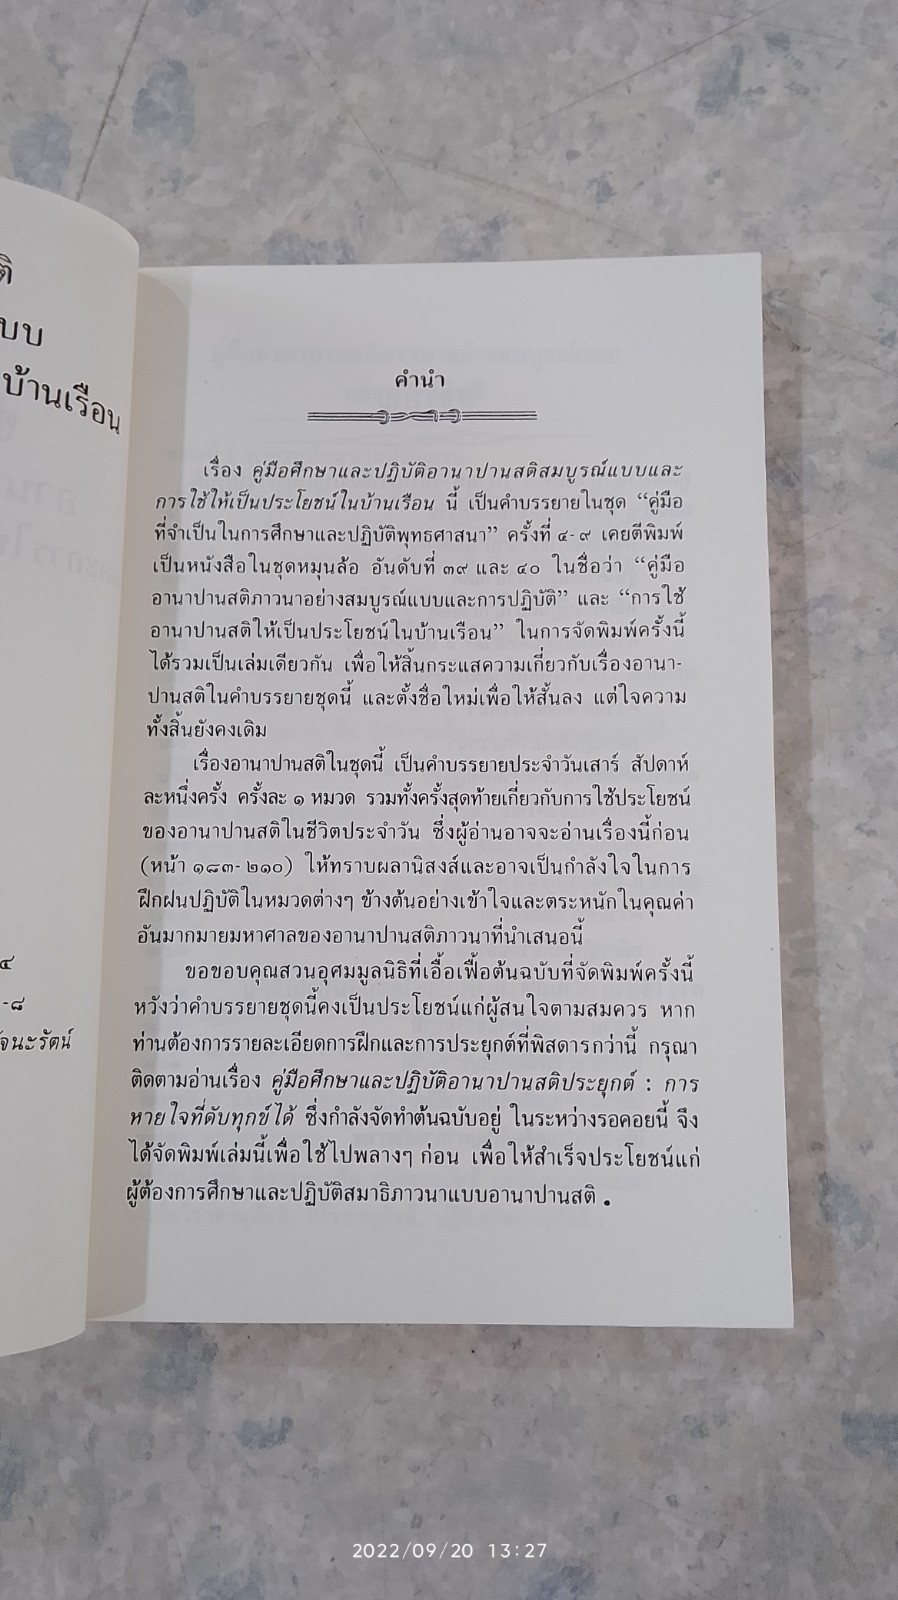 ติ
บบ
บ้านเรือน
๔
-๘
จนะรัตน์
คำนำ
เรื่อง คู่มือศึกษาและปฏิบัติอานาปานสติสมบูรณ์แบบและ
การใช้ให้เป็นประโยชน์ในบ้านเรือน นี้ เป็นคำบรรยายในชุด “คู่มือ
ที่จำเป็นในการศึกษาและปฏิบัติพุทธศาสนา” ครั้งที่ ๔-๙ เคยตีพิมพ์
เป็นหนังสือในชุดหมุนล้อ อันดับที่ ๓๙ และ ๔๐ ในชื่อว่า “คู่มือ
อานาปานสติภาวนาอย่างสมบูรณ์แบบและการปฏิบัติ” และ “การใช้
อานาปานสติให้เป็นประโยชน์ในบ้านเรือน” ในการจัดพิมพ์ครั้งนี้
ได้รวมเป็นเล่มเดียวกัน เพื่อให้สิ้นกระแสความเกี่ยวกับเรื่องอานา-
ปานสติในคำบรรยายชุดนี้ และตั้งชื่อใหม่เพื่อให้สั้นลง แต่ใจความ
ทั้งสิ้นยังคงเดิม
เรื่องอานาปานสติในชุดนี้ เป็นคำบรรยายประจำวันเสาร์ สัปดาห์
ละหนึ่งครั้ง ครั้งละ ๑ หมวด รวมทั้งครั้งสุดท้ายเกี่ยวกับการใช้ประโยชน์
ของอานาปานสติในชีวิตประจำวัน ซึ่งผู้อ่านอาจจะอ่านเรื่องนี้ก่อน
(หน้า ๑๘๓-๒๑๐) ให้ทราบผลานิสงส์และอาจเป็นกำลังใจในการ
ฝึกฝนปฏิบัติในหมวดต่างๆ ข้างต้นอย่างเข้าใจและตระหนักในคุณค่า
อันมากมายมหาศาลของอานาปานสติภาวนาที่นำเสนอนี้
ขอขอบคุณสวนอุศมมูลนิธิที่เอื้อเฟื้อต้นฉบับที่จัดพิมพ์ครั้งนี้
หวังว่าคำบรรยายชุดนี้คงเป็นประโยชน์แก่ผู้สนใจตามสมควร หาก
ท่านต้องการรายละเอียดการฝึกและการประยุกต์ที่พิสดารกว่านี้ กรุณา
ติดตามอ่านเรื่อง คู่มือศึกษาและปฏิบัติอานาปานสติประยุกต์ : การ
หายใจที่ดับทุกข์ได้ ซึ่งกำลังจัดทำต้นฉบับอยู่ ในระหว่างรอคอยนี้ จึง
ได้จัดพิมพ์เล่มนี้เพื่อใช้ไปพลางๆ ก่อน เพื่อให้สำเร็จประโยชน์แก่
ผู้ต้องการศึกษาและปฏิบัติสมาธิภาวนาแบบอานาปานสติ •
2022/09/20 13:27